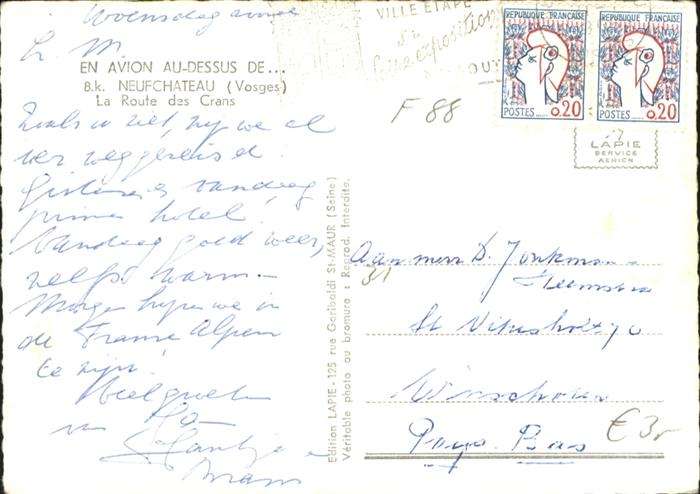 Woensdag avond
L. M.
EN AVION AU-DESSUS DE...
8.k. NEUFCHATEAU (Vosges)
La Route des Crans
Zoals u ziet, zijn we al
ver weggereisd.
Gisteren en vandaag
prima hotel.
Vandaag goed weer,
zelfs warm.
Morgen hopen we in
de Franse Alpen
te zijn!
Veel groeten
van
VILLE ETAPE
exposition
F 88
REPUBLIQUE FRANÇAISE
POSTES 0,20
REPUBLIQUE FRANÇAISE
POSTES 0,20
LAPIE
SERVICE
AERIEN
Edition LAPIE - 125 rue Garibaldi St-MAUR (Seine)
Véritable photo au bromure : Reprod. Interdite.
Aan mevr D. Jonkman
St Vitusholt
Winschoten
Pays-Bas
€ 3,-